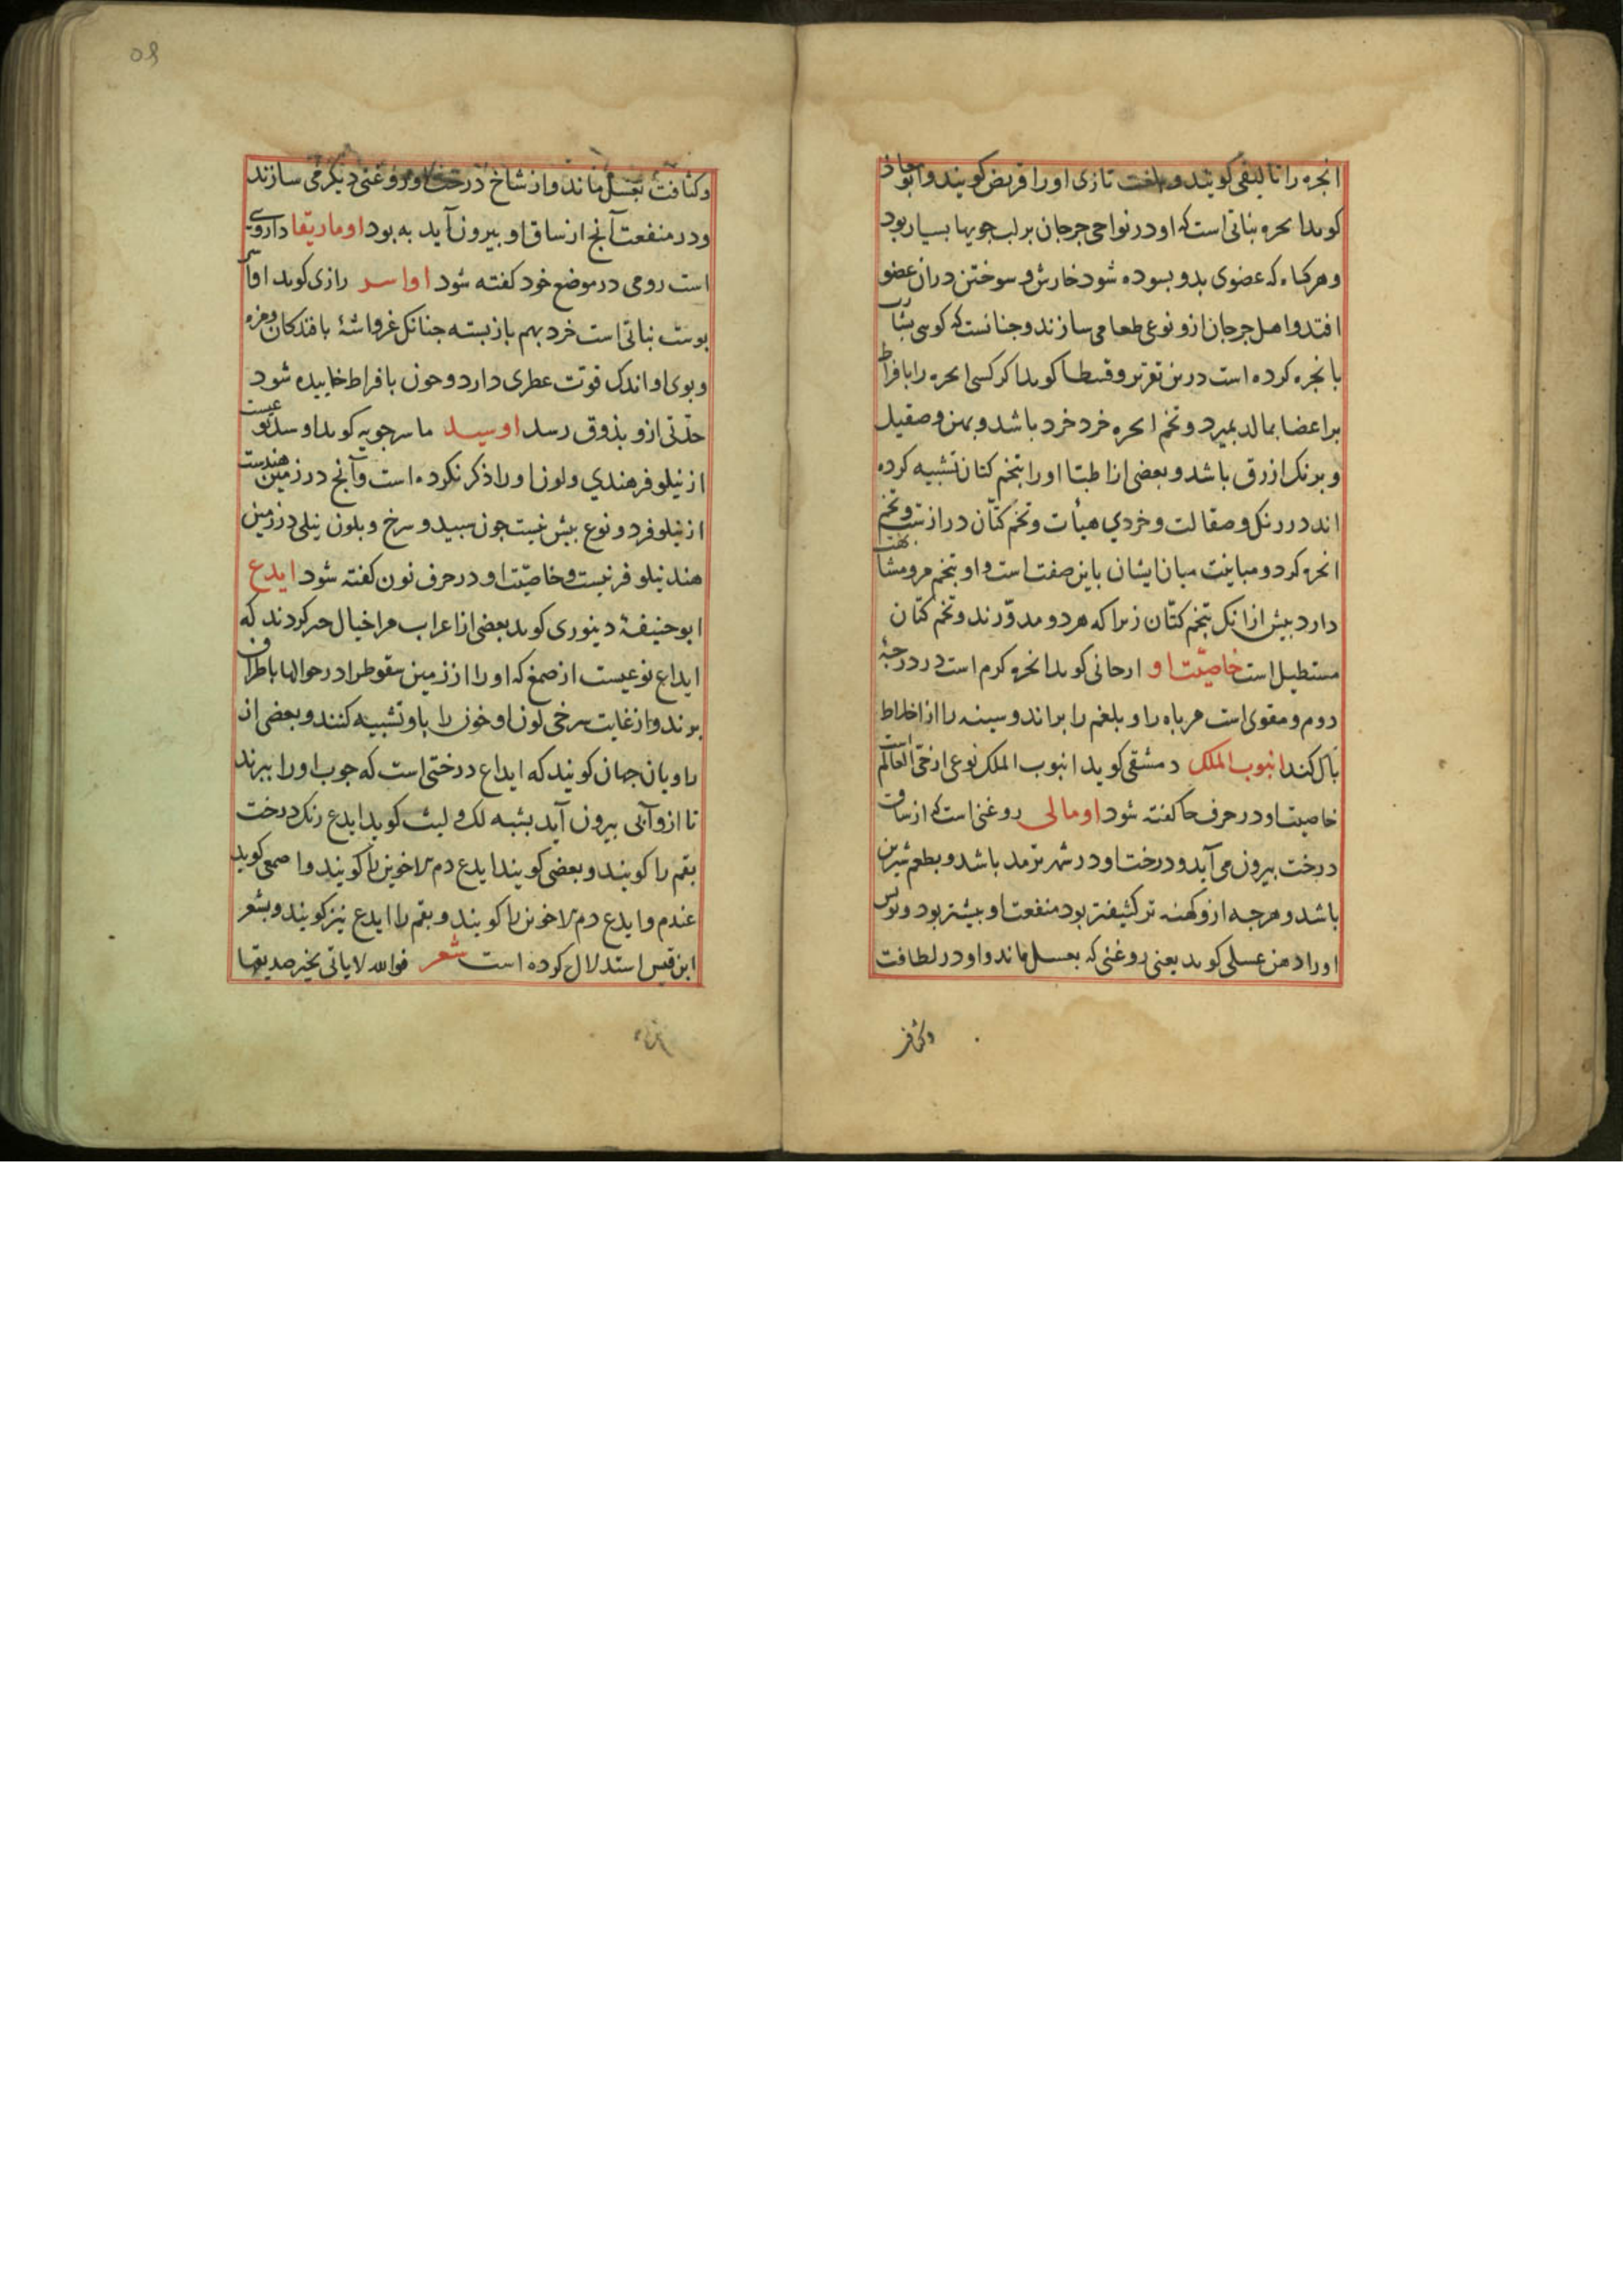 انجره را تا لیفی کویند و بلغت تازی اورا قریض کویند و ابو
کوید انجره نباتی است که او در نواحی جرجان بر لب جویها بسیار بود
و هر کاه که عضوی بدو بسوده شود خارش و سوختن دران عضو
افتد و اهل جرجان ازو نوعی طعام می سازند و جنانست که کوسی
بانجره کرده است درین تقریر و قسطا کوید اکر کسی انجره را بافراط
بر اعضا بمالد بمیرد و تخم انجره خرد خرد باشد و بهن و صقیل
و برنک ازرق باشد و بعضی از اطبّا او را بتخم کتان تشبیه کرده
اند در رنک و صقالت و خردی هیأت و تخم کتّان درازتست و تخم
انجره کرد و مباینت میان ایشان باین صفت است و او بتخم مرو مشابهت
دارد بیش از انک بتخم کتّان زیرا که هر دو مدوّرند و تخم کتان
مستطیل است خاصیّت او ارجانی کوید انجره کرم است در درجهٔ
دوم و مقوی است مر باه را و بلغم را براند و سینه را از اخلاط
باک کند انبوب الملک دمشقی کوید انبوب الملک نوعی از حیّ العالم است
خاصیت او در حرف حا کفته شود اومالی روغنی است که از ساق
درخت بیرون می آید و درخت او در شهر تدمر باشد و بطعم شیرین
باشد و هرجه ازو کهنه تر کثیفتر بود منفعت او بیشتر بود
اورا دهن عسلی کوید یعنی روغنی که بعسل ماند و او در لطافت
وکثافت
وکثافت بعسل ماند و از شاخ درخت او روغنی دیکر می سازند
و در منفعت آنج از ساق او بیرون آید به بود اوماریقا داروی
است رومی در موضع خود کفته شود اواسر رازی کوید
بوست نباتی است خرد بهم باز بسته جنانک غرواشهٔ بافندکان
و بوی او اندک قوت عطری دارد و جون بافراط خاییده شود
حدّتی ازو بذوق رسد اوسید ماسرجویه کوید اوسد نوعیست
از نیلوفر هندی و لون او را ذکر نکرده است و آنج در زمین هندست
از نیلوفر دو نوع بیش نیست جون سبید و سرخ و بلون نیلی در زمین
هند نیلوفر نیست و خاصیّت او در حرف نون کفته شود ایدع
ابو حنیفهٔ دینوری کوید بعضی از اعراب مرا خیال جر کردند که
ایداع نوعیست از صمغ که او را از زمین سقوطرا در جوالها باطراف
برند و از غایت سرخی لون او خون را باو تشبیه کنند و بعضی از
راویان جهان کویند که ایداع درختی است که جوب او را ببرند
تا ازو آبی بیرون آید بشبه لک و لیث کوید ایدع رنک درخت
بقم را کویند و بعضی کویند ایدع دم الاخوین را کویند و اصمعی کوید
عندم و ایدع دم الاخوین را کویند و بقم را ایدع نیز کویند و بشعر
ابن قیس استدلال کرده است شعر فوالله لا یاتی بخیر صدیقها